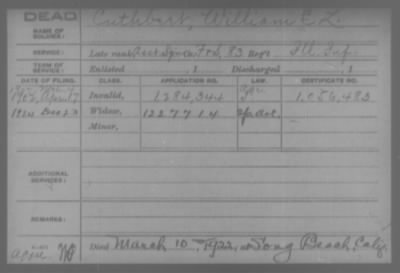 DEAD
NAME OF SOLDIER: Cuthbert, William E. L.
SERVICE: Late rank, Regt. 83 Reg't Ill. Inf.
TERM OF SERVICE: Enlisted , 1 Discharged , 1
DATE OF FILING. CLASS. APPLICATION NO. LAW. CERTIFICATE NO.
1902, Apr 17 Invalid, 1,284,344 Gen 1,056,483
1922 Dec 23 Widow, 1227714
Minor,
ADDITIONAL SERVICES:
REMARKS:
Died March 10, 1922, at Long Beach, Calif.